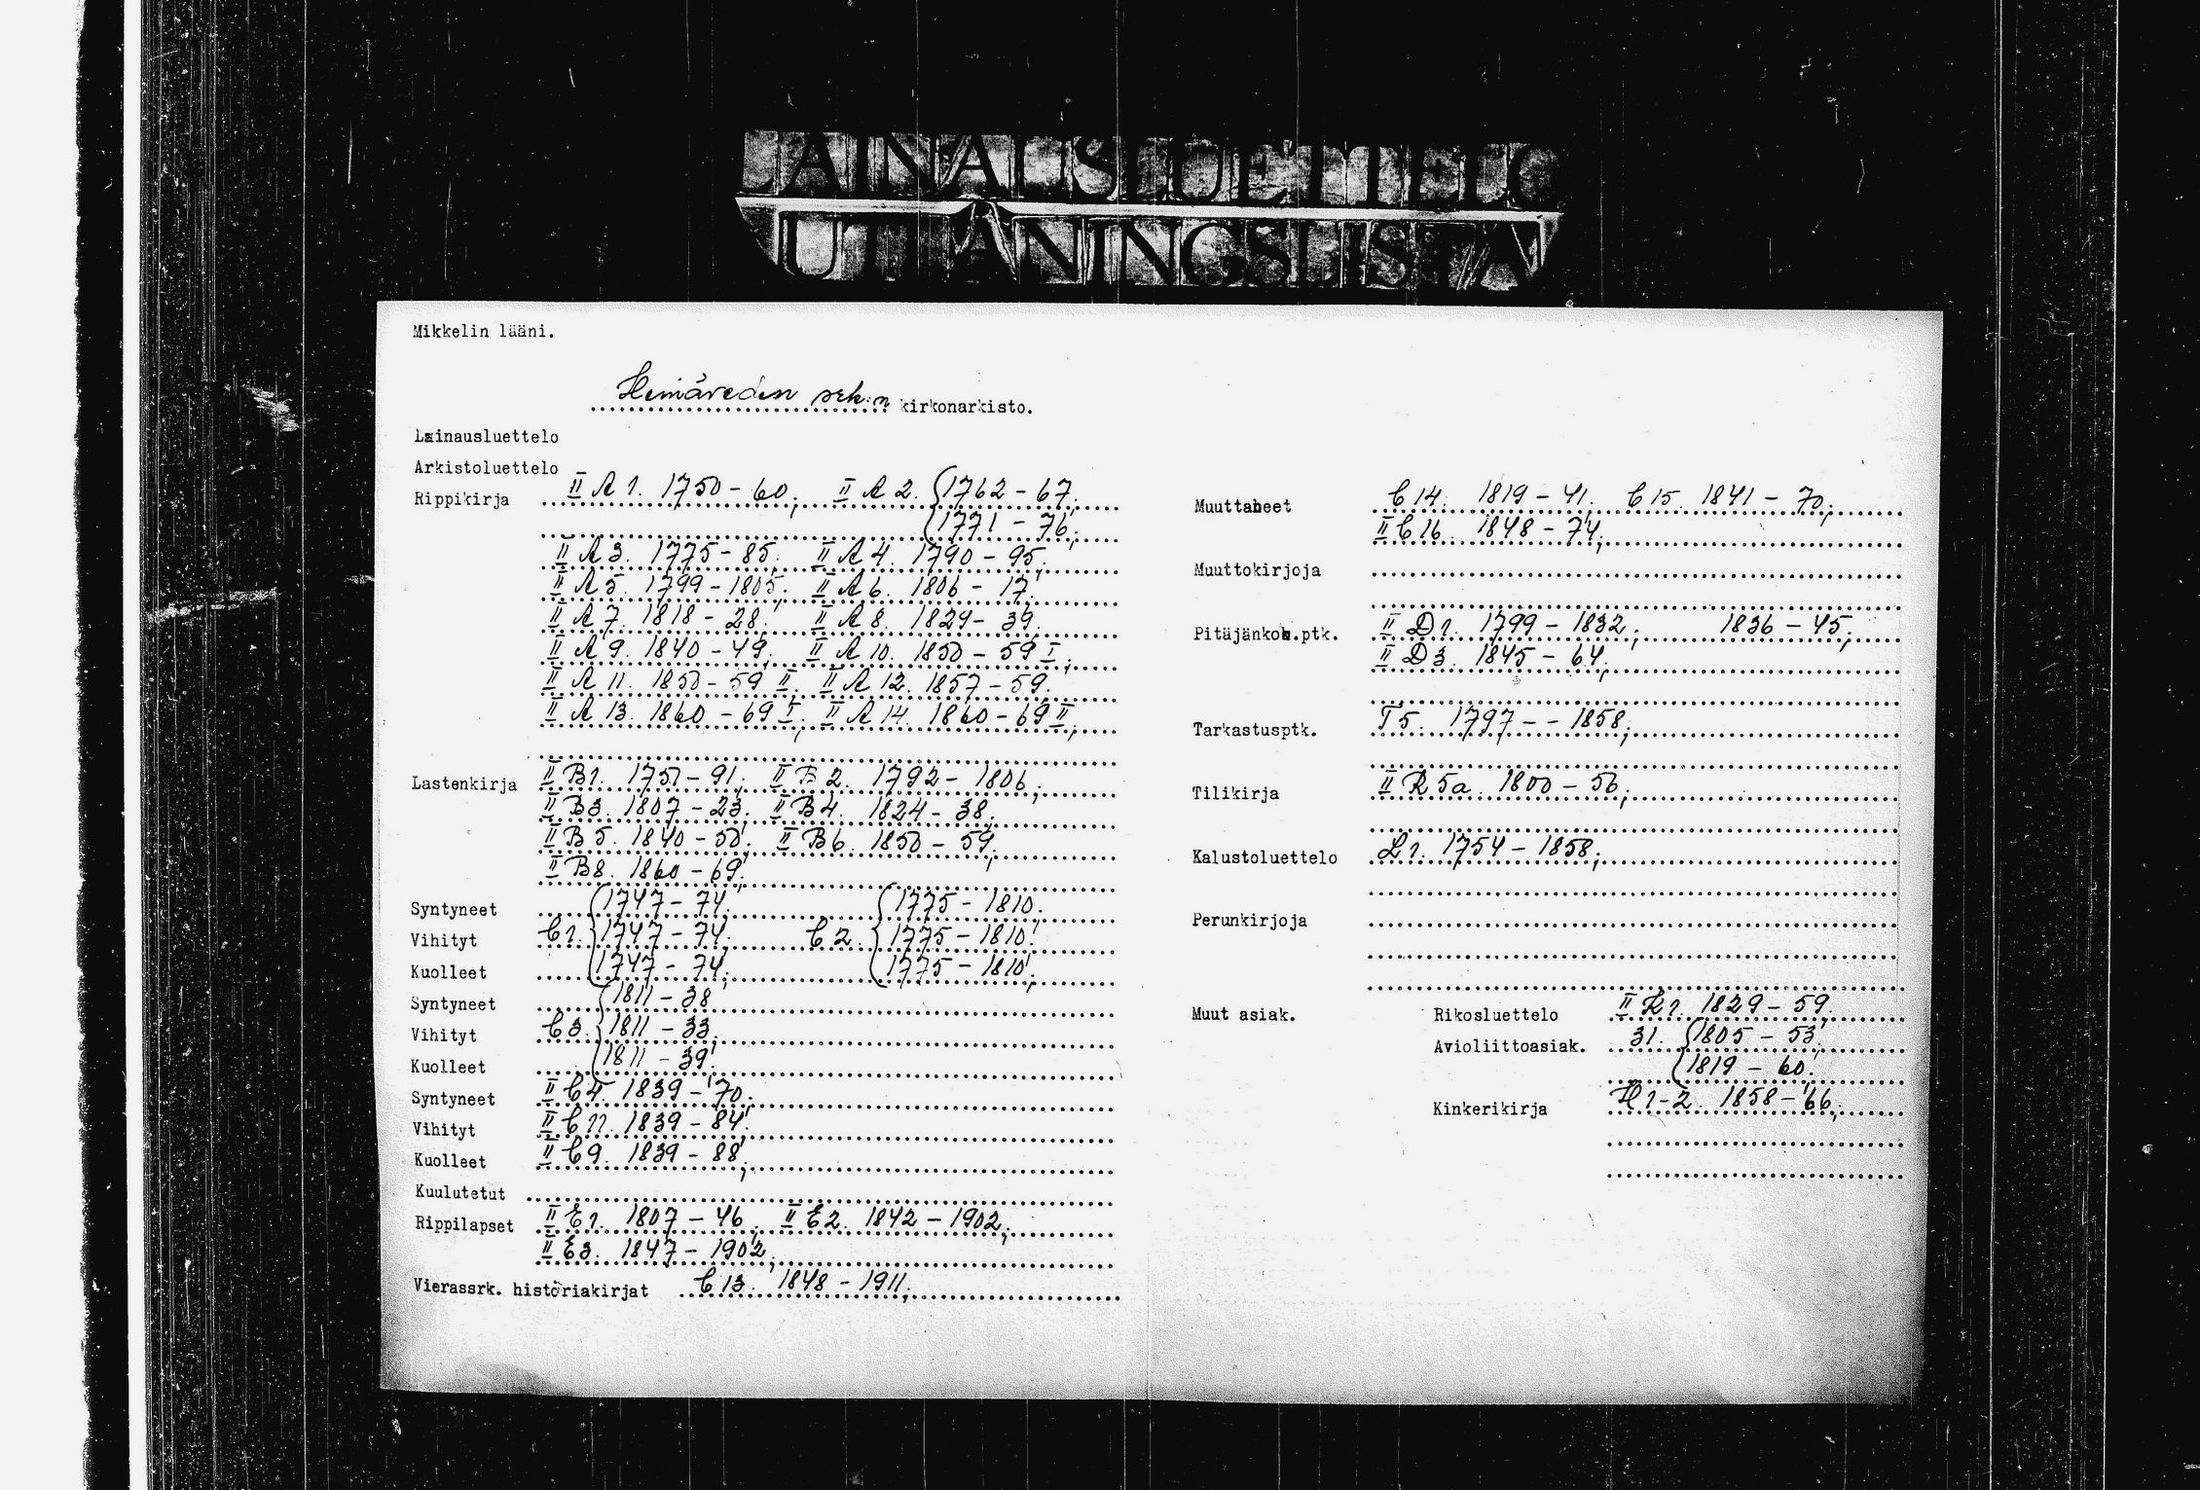 LAINAUSLUETTELO
UTLÅNINGSLISTA
Mikkelin lääni.
Heinäveden srk:n kirkonarkisto.
Lainausluettelo
Arkistoluettelo
Rippikirja II A 1. 1750 - 60; II A 2. 1762 - 67;
1771 - 76;
II A 3. 1775 - 85; II A 4. 1790 - 95;
II A 5. 1799 - 1805; II A 6. 1806 - 17.
II A 7. 1818 - 28. II A 8. 1829 - 39.
II A 9. 1840 - 49; II A 10. 1850 - 59 I;
II A 11. 1850 - 59 II; II A 12. 1857 - 59.
II A 13. 1860 - 69 I; II A 14. 1860 - 69 II;
Lastenkirja II B1. 1751 - 91; II B 2. 1792 - 1806;
II B3. 1807 - 23; II B4. 1824 - 38;
II B 5. 1840 - 50; II B6. 1850 - 59;
II B8. 1860 - 69;
Syntyneet 1747 - 74; 1775 - 1810;
Vihityt C 1. 1747 - 74; C 2. 1775 - 1810;
Kuolleet 1747 - 74; 1775 - 1810;
Syntyneet 1811 - 38
Vihityt C 3. 1811 - 33;
Kuolleet 1811 - 39;
Syntyneet II C 4. 1839 - 70;
Vihityt II C 11. 1839 - 84;
Kuolleet II C 9. 1839 - 88;
Kuulutetut
Rippilapset II E 1. 1807 - 46; II E 2. 1842 - 1902;
II E 3. 1847 - 1902;
Vierassrk. historiakirjat C 13. 1848 - 1911;
Muuttaneet C 14. 1819 - 41. C 15. 1841 - 70;
II C 16. 1848 - 74;
Muuttokirjoja
Pitäjänkok.ptk. II D 1. 1799 - 1832; 1836 - 45;
II D 3. 1845 - 64;
Tarkastusptk. T 5. 1797 - - 1858;
Tilikirja II R 5a. 1800 - 56;
Kalustoluettelo L 1. 1754 - 1858;
Perunkirjoja
Muut asiak. Rikosluettelo II K 1. 1829 - 59.
Avioliittoasiak. 31. 1805 - 53;
1819 - 60;
Kinkerikirja H 1-2. 1858 - 66;